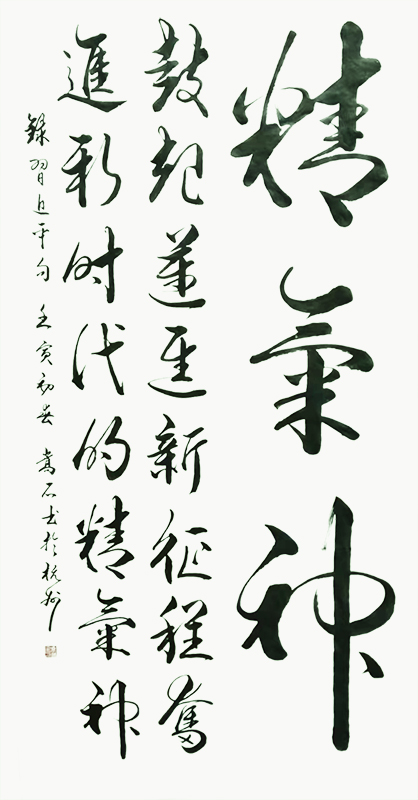 精氣神
鼓起邁進新征程奮
進新时代的精氣神
錄習近平句 壬寅初春 石书於杭州